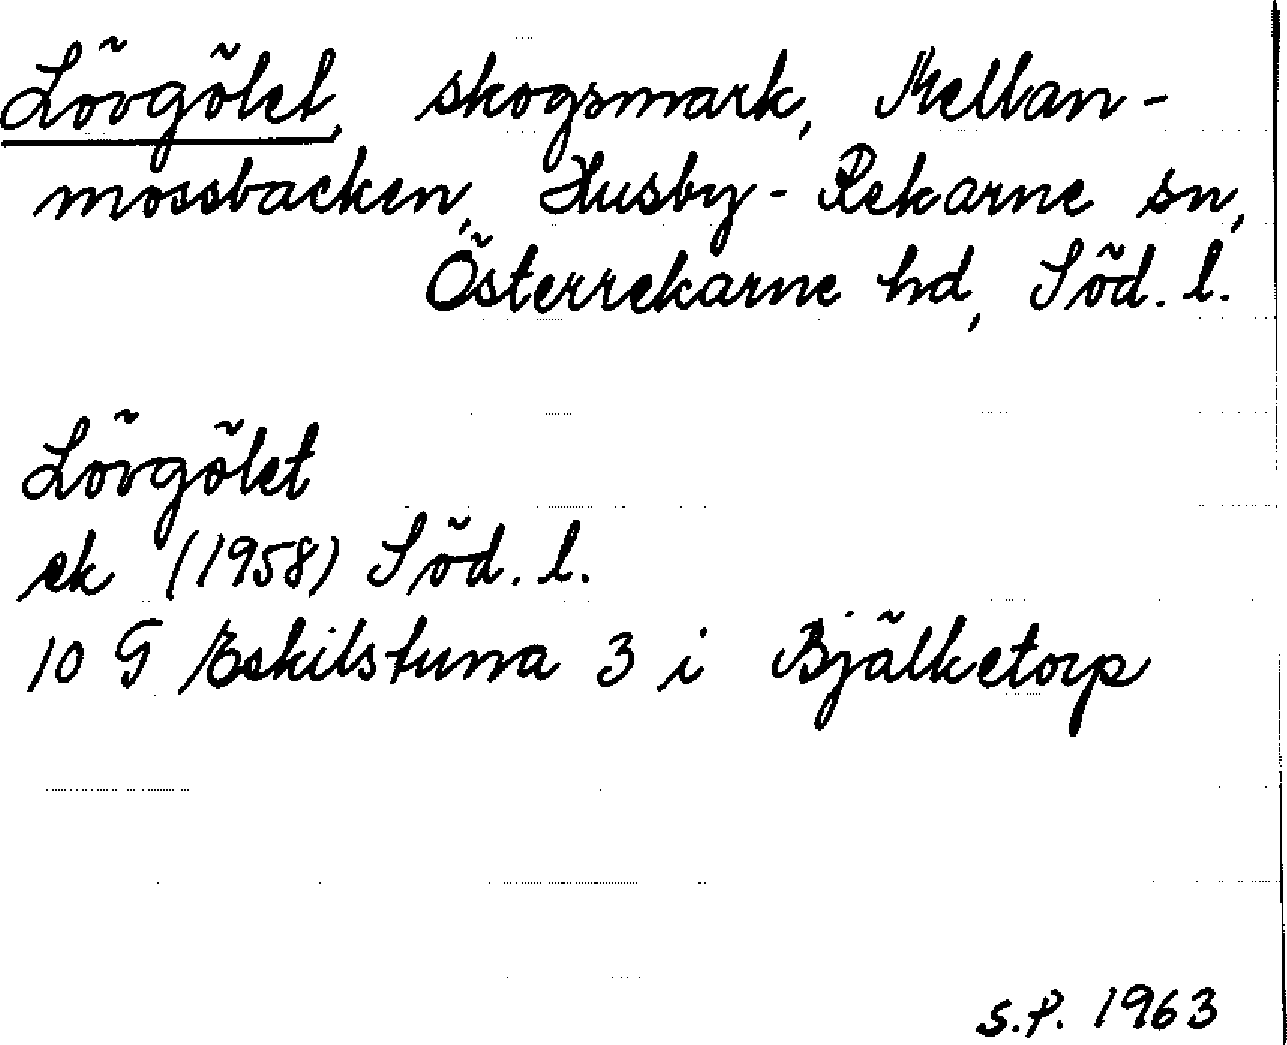 Lövgölet, skogsmark, Mellan-
mossbacken, Husby-Rekarne sn,
Österrekarne hd, Söd. l.
Lövgölet
ek (1958) Söd. l.
10 G Eskilstuna 3 i Bjälketorp
S.P. 1963